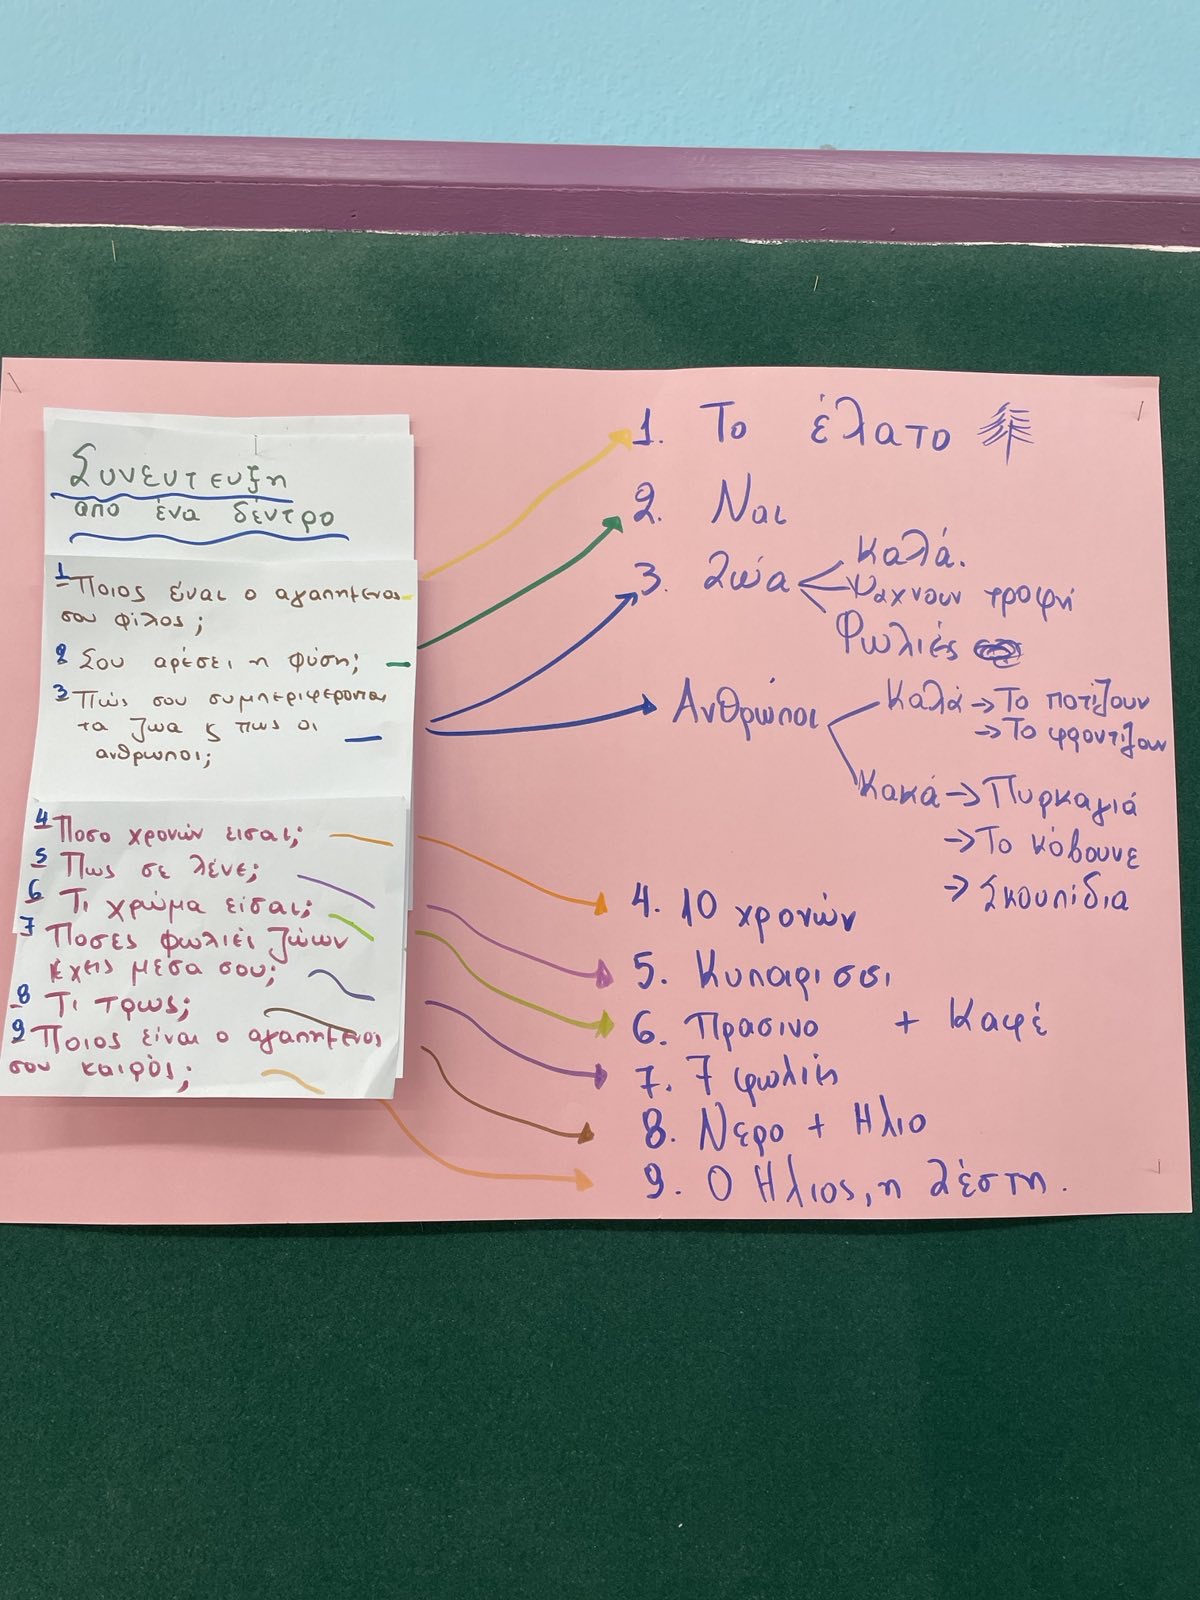 Συνευτευξη
απο ένα δέντρο
1 Ποιος έιναι ο αγαπημενος
σου φίλος;
2 Σου αρέσει η φύση;
3 Πώς σου συμπεριφερονται
τα ζωα ς πως οι
ανθρωποι;
4 Ποσο χρονών εισαι;
5 Πως σε λένε;
6 Τι χρώμα είσαι;
7 Ποσες φωλιές ζώων
έχεις μέσα σου;
8 Τι τρως;
9 Ποιος είναι ο αγαπημενος
σου καιρός;
1. Το έλατο
2. Ναι
3. Ζώα
Καλά.
Ψαχνουν τροφή
Φωλιές
Ανθρώποι
Καλά → Το ποτίζουν
→ Το φροντίζουν
Κακά → Πυρκαγιά
→ Το κόβουνε
→ Σκουπίδια
4. 10 χρονών
5. Κυπαρισσι
6. Πρασινο + Καφέ
7. 7 φωλιές
8. Νερο + Ηλιο
9. Ο Ηλιος, η λέστη.